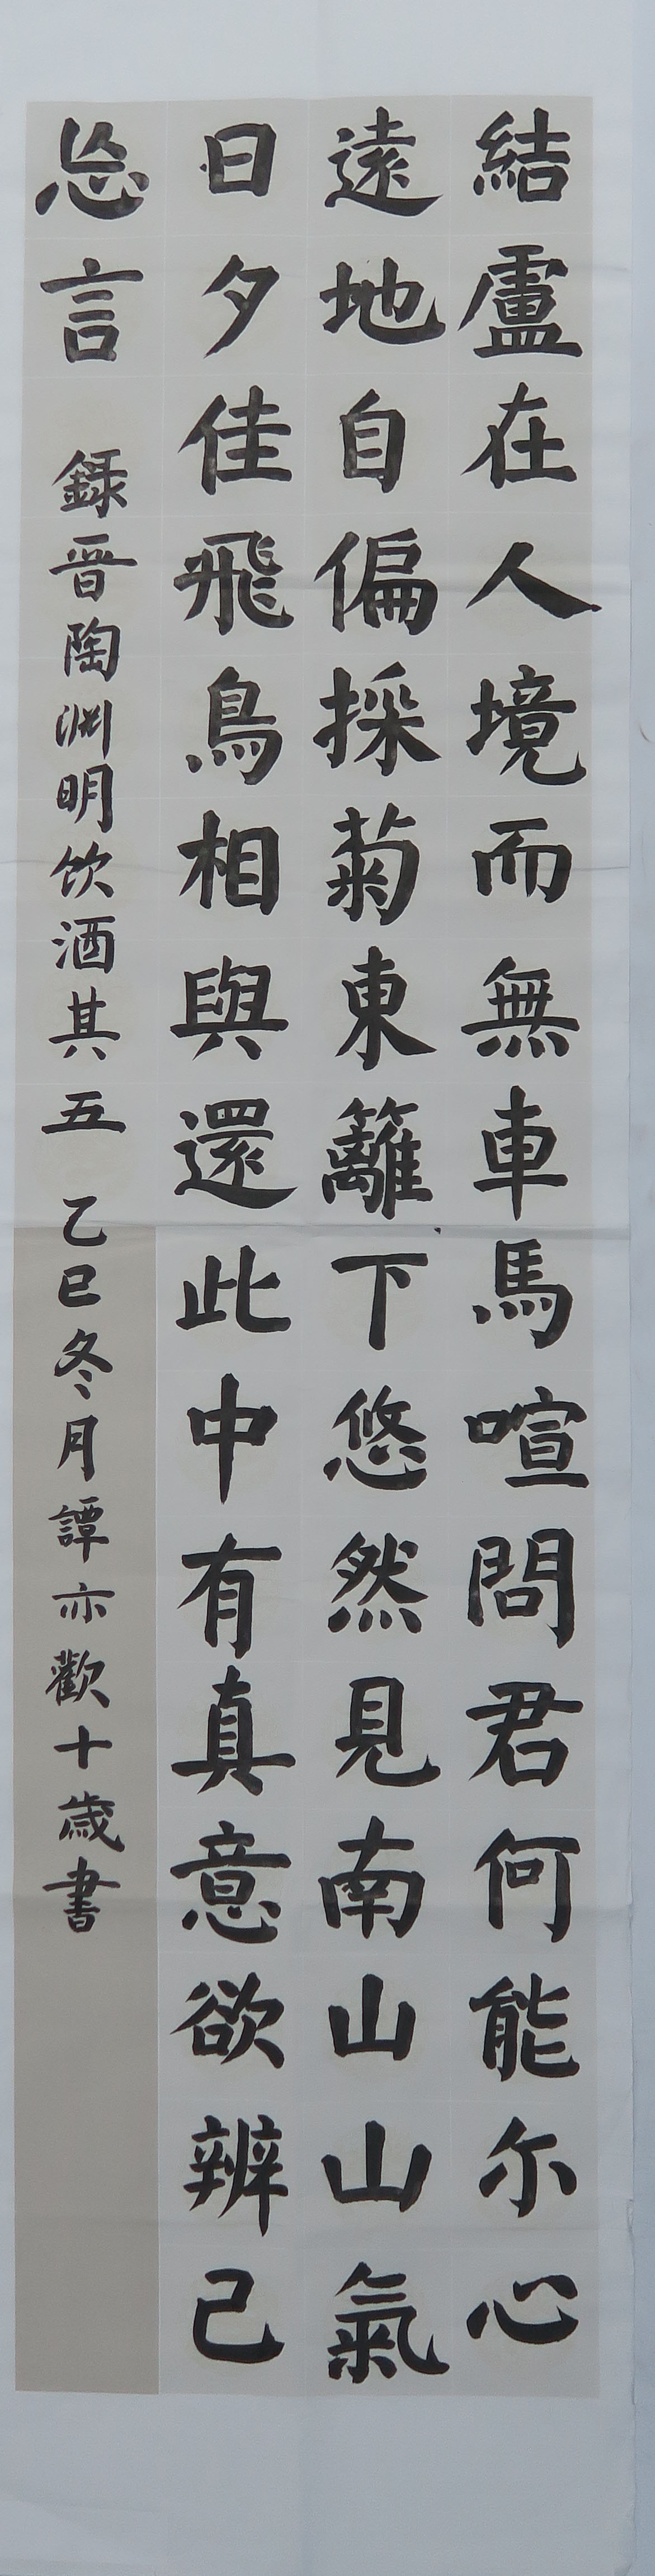 結盧在人境而無車馬喧問君何能尔心
遠地自偏採菊東籬下悠然見南山山氣
日夕佳飛鳥相與還此中有真意欲辨己
忘言 錄晉陶淵明饮酒其五 乙巳冬月譚亦歡十歲書